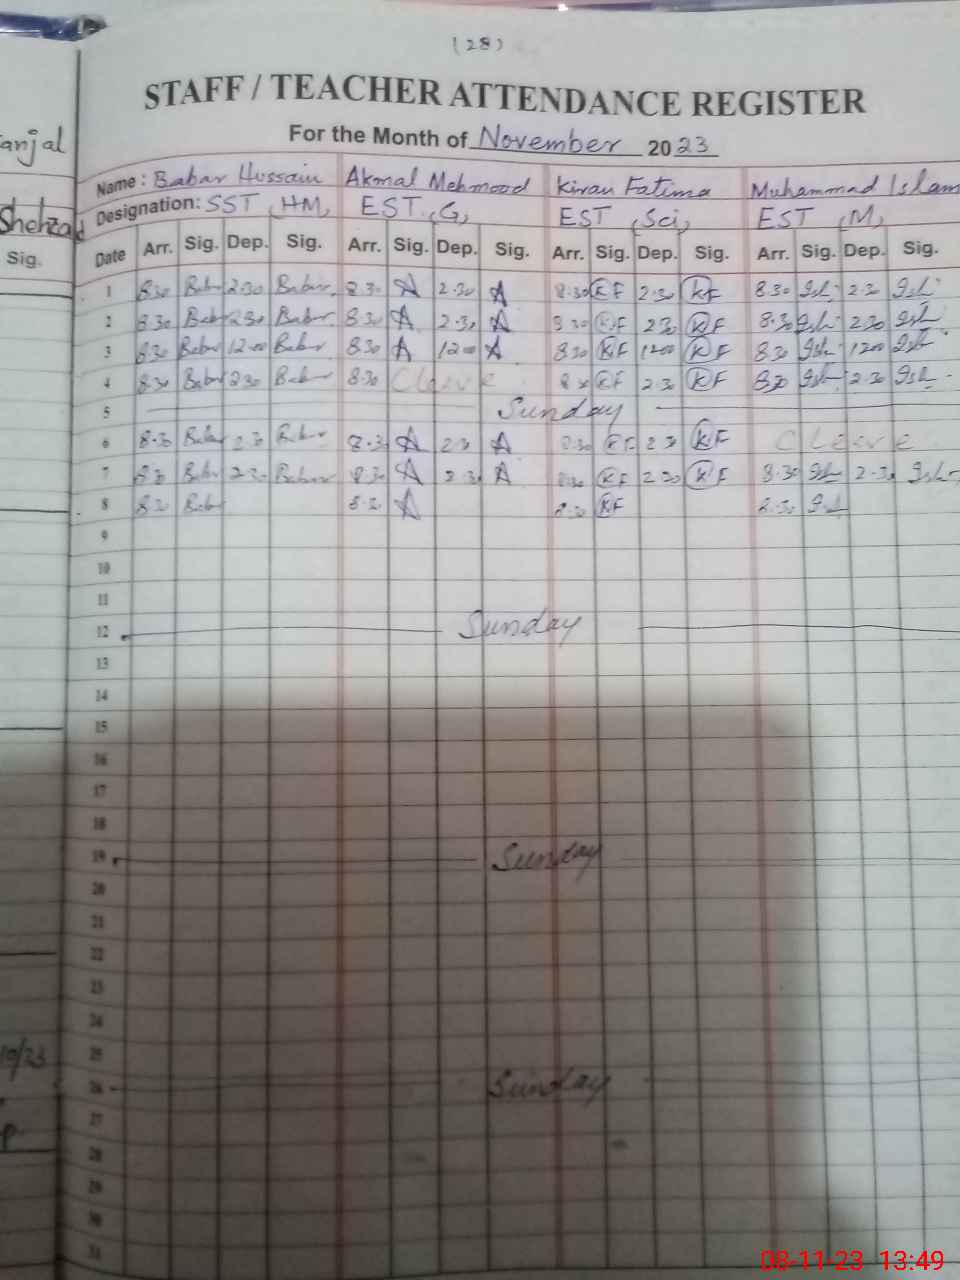 (28)
STAFF / TEACHER ATTENDANCE REGISTER
For the Month of November 2023
anjal
Name: Babar Hussain Akmal Mehmood Kiran Fatima Muhammad Islam
Shehzad
Designation: SST (HM) EST (G) EST (Sci) EST (M)
Sig.
Date Arr. Sig. Dep. Sig. Arr. Sig. Dep. Sig. Arr. Sig. Dep. Sig. Arr. Sig. Dep. Sig.
1 8.30 Babar 2.30 Babar 8.30 A 2.30 A 8.30 KF 2.30 KF 8.30 Ish 2.30 Ish
2 8.30 Babar 2.30 Babar 8.30 A 2.30 A 8.30 KF 2.30 KF 8.30 Ish 2.30 Ish
3 8.30 Babar 12.00 Babar 8.30 A 12.00 A 8.30 KF 12.00 KF 8.30 Ish 12.00 Ish
4 8.30 Babar 2.30 Babar 8.30 C leave 8.30 KF 2.30 KF 8.30 Ish 2.30 Ish
5 Sunday
6 8.30 Babar 2.30 Babar 8.30 A 2.30 A 8.30 KF 2.30 KF C Leave
7 8.30 Babar 2.30 Babar 8.30 A 2.30 A 8.30 KF 2.30 KF 8.30 Ish 2.30 Ish
8 8.30 Babar 8.30 A 8.30 KF 8.30 Ish
9
10
11
12 Sunday
13
14
15
16
17
18
19 Sunday
20
21
22
23
24
25
19/23
26 Sunday
27
28
29
30
31
08-11-23 13:49